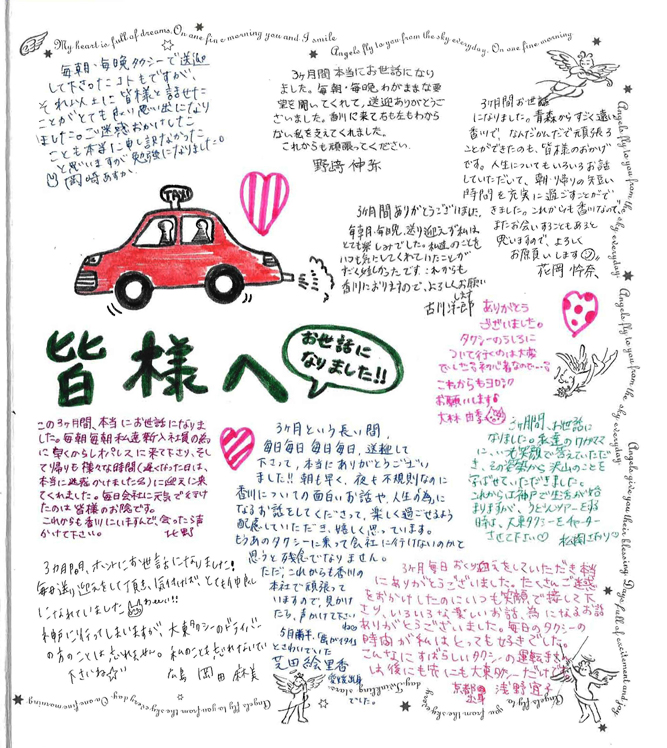 My heart is full of dreams. On one fine morning you and I smile
Angels fly to you from the sky everyday. On one fine morning
毎朝・毎晩タクシーで送迎
して下さったコトもですが、
それ以上に皆様と話せた
ことがとても良い思い出になり
ました。ご迷惑おかけした
ことも本当に申し訳なかった
と思いますが勉強になりました。
岡崎あすか
3ヶ月間本当にお世話になり
ました。毎朝・毎晩、わがままな要
望を聞いてくれて、送迎ありがとうご
ざいました。香川に来て右も左もわから
ない私を支えてくれました。
これからも頑張ってください。
野崎 伸弥
3ヶ月間お世話
になりました。青森からすごく遠い
香川で、なんだかんだで頑張る
ことができたのも、皆様のおかげ
です。人生についてもいろいろお話
していただいて、朝・帰りの短い
時間を充実に過ごすことがで
きました。これからも香川なので、
またお会いすることもあると
思いますので、よろしく
お願いします
花岡
TAXI
3ヶ月間ありがとうございました。
毎朝・毎晩、送り迎えで私は
とても楽しみでした。私達のことを
いつも気にしてくれていたことが
だく嬉しかったです。これからも
香川におりますので、よろしくお願い
します
古川洋一郎
皆様へ
お世話に
なりました!!
ありがとう
ございました。
タクシーのうしろに
ついて行くのは大変
でした
これからもヨロシク
お願いします
大林 由季
この3ヶ月間、本当にお世話になりま
した。毎朝毎朝私達新入社員の為
に早くからレオパレスに来て下さり、そし
て帰りも様々な時間(遅くなった日は、
本当に迷惑かけましたね)に迎えに来
てくれました。毎日会社に元気で行け
たのは皆様のお陰です。
これからも香川にいますんで、会ったら声
かけて下さい。
北野
3ヶ月という長い間、
毎日毎日毎日毎日、送迎して
下さって、本当にありがとうござい
ました!!朝も早く、夜も不規則なのに
香川についての面白いお話や、人生の為に
なるお話をしてくださって、楽しく過ごせるよう
配慮していただき、嬉しく思っています。
もうあのタクシーに乗って会社に行けないのかと
思うと残念でなりません。
ただ、これからも香川の
本社で頑張って
いますので、見かけ
たら、声かけて下さい
ね
5月病平、
とさわいでいた
芝田絵里香
でした。
3ヶ月間、お世話に
なりました。私達のワガママ
に、いつも笑顔で答えていただ
き、その姿勢から沢山のことを
学ばせていただきました。
これからは神戸で生活が始
まりますが、うどんツアーをする
時は、大東タクシーをチャーター
させて下さい♡
松岡さおり♡
3カ月間、ホントにお世話になりました!
毎日送り迎えをして頂き、気付けば、とても仲良し
になれていました
広島に行ってしまいますが、大東タクシーのドライバー
の方のことは忘れません。私のことも忘れないで
下さいね☆
広島 岡田 麻美
3ヶ月毎日おくり迎えをしていただき本当
にありがとうございました。たくさんご迷惑
をおかけしたのにいつも笑顔で接して下
さり、いろいろな楽しいお話、為になるお話
ありがとうございました。毎日のタクシーの
時間が私はとっても好きでした。
こんなにすばらしいタクシーの運転手さん
は、後にも先にも大東タクシーだけです
京都 浅野宜子
Angels fly to you from the sky everyday.
Angels give you their blessing. Days full of excitement and joy
Twinkling stars
Angels fly to you from the sky everyday. On one fine morning